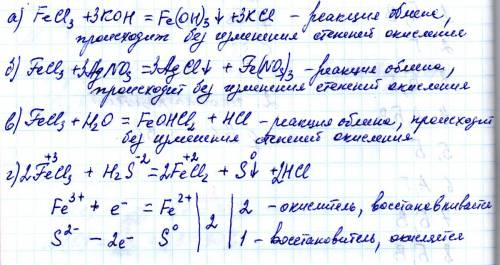 а) FeCl₃ + 3KOH = Fe(OH)₃↓ + 3KCl – реакция обмена,
происходит без изменения степеней окисления
б) FeCl₃ + 3AgNO₃ = 3AgCl↓ + Fe(NO₃)₃ – реакция обмена,
происходит без изменения степеней окисления
в) FeCl₃ + H₂O = FeOHCl₂ + HCl – реакция обмена, происходит
без изменения степеней окисления
г) 2Fe⁺³Cl₃ + H₂S⁻² = 2Fe⁺²Cl₂ + S⁰↓ + 2HCl
Fe³⁺ + e⁻ = Fe²⁺ | 2 | 2 – окислитель, восстанавливается
S²⁻ – 2e⁻ S⁰ | 1 – восстановитель, окисляется